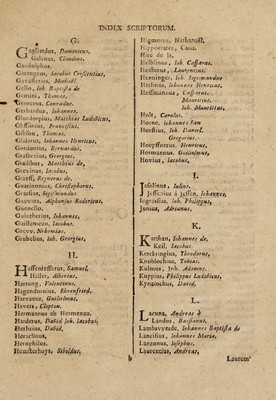 INDEX SCRIPTORUM.
G.
Gagliardus, Dominicus.
Galenus, Claudius.
Gandolphus.
Garengeot, Iacobus Crescentius.
Gavasseti, Michaël.
Gello, Ioh. Baptista de
Gemini, Thomas.
Gesnerus, Conradus.
Gerlandus, Iohannes.
Glandorpius, Matthias Ludovicus.
Glissonius, Franciscus.
Gibson, Thomas.
Glaserus, Iohannes Henricus.
Gordonius, Bernardus.
Graseccius, Georgius.
Gradibus, Matthæus de,
Grevinus, Iacobus.
Graeff, Regnerus de.
Guarinonius, Christophorus.
Grassius, Sigismundus
Guevara, Alphonsus Rodericus.
Guinello.
Guintherius, Iohannes.
Guillemeau, Iacobus.
Greve, Nehemias.
Grubelius, Ioh. Georgius.
H.
Haffenrefferus, Samuel.
Haller, Albertus.
Hartung, Valentinus.
Hagendornius, Ehrenfried.
Harvaeus, Guilielmus.
Havers, Clopton.
Hermannus ab Hermenza.
Harderus, David Joh. Iacobus.
Herlicius, David.
Heraclinus,
Herophilus.
Heusterhuys, Siboldus.
Higmorus, Nathanaël.
Hippocrates, Cous.
Hire de la.
Helbinus, Ioh. Casparus.
Heisterus, Laurentius.
Henninger, Ioh. Sigismundus
Heshusa, Iohannes Henricus.
Hoffmannus, Casparus.
Mauricius.
Ioh. Mauritius.
Holt, Carolus.
Horne, Iohannes van
Horstius, Ioh. Daniel.
Gregorius.
Hoepffnerus, Henricus.
Hormannus, Guilielmus,
Hovius, Iacobus,
I.
Jasolinus, Iulius.
Jessenius à Jessen, Iohannes.
Ingrassias, Ioh. Philippus,
Junius, Adrianus.
K.
Karthan, Iohannes de.
Keil, Iacobus.
Kerckringius, Theodorus,
Knoblochus, Tobias.
Kulmus, Ioh. Adamus.
Kuppius, Philippus Ludovicus,
Kynalochus, David.
L.
Lacuna, Andreas à
Landus, Bassianus.
Lambuvyerde, Iohannes Baptista de
Lancisius, Iohannes Maria.
Lanzonus, Iosephus.
Laurentius, Andreas,
b
Laurem-